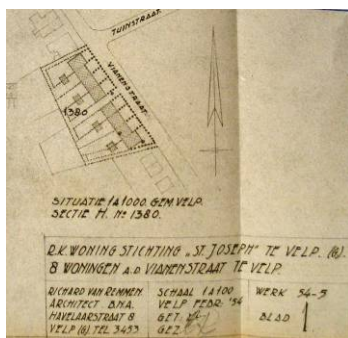 TUINSTRAAT.
VIANENSTRAAT.
1380
SITUATIE 1 à 1000. GEM. VELP.
SECTIE H. No 1380.
R.K. WONING STICHTING „ST. JOSEPH" TE VELP. (G).
8 WONINGEN A.D. VIANENSTRAAT TE VELP.
RICHARD VAN REMMEN
ARCHITECT B.N.A.
HAVELAARSTRAAT 8
VELP (G) TEL 3453
SCHAAL 1 à 100
VELP FEBR. '54
GET.
GEZ.
WERK 54-5
BLAD 1